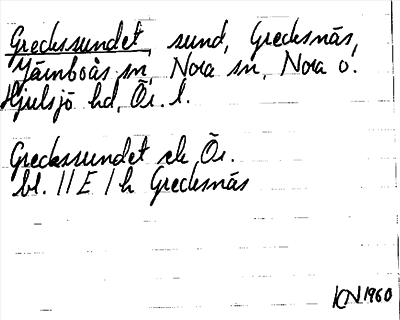 Greckssundet, sund, Grecksnäs,
Järnboås sn, Nora sn, Nora o.
Hjulsjö hd, Ör. l.
Greckssundet ek Ör.
bl. 11E 1h Grecksnäs
KN 1960